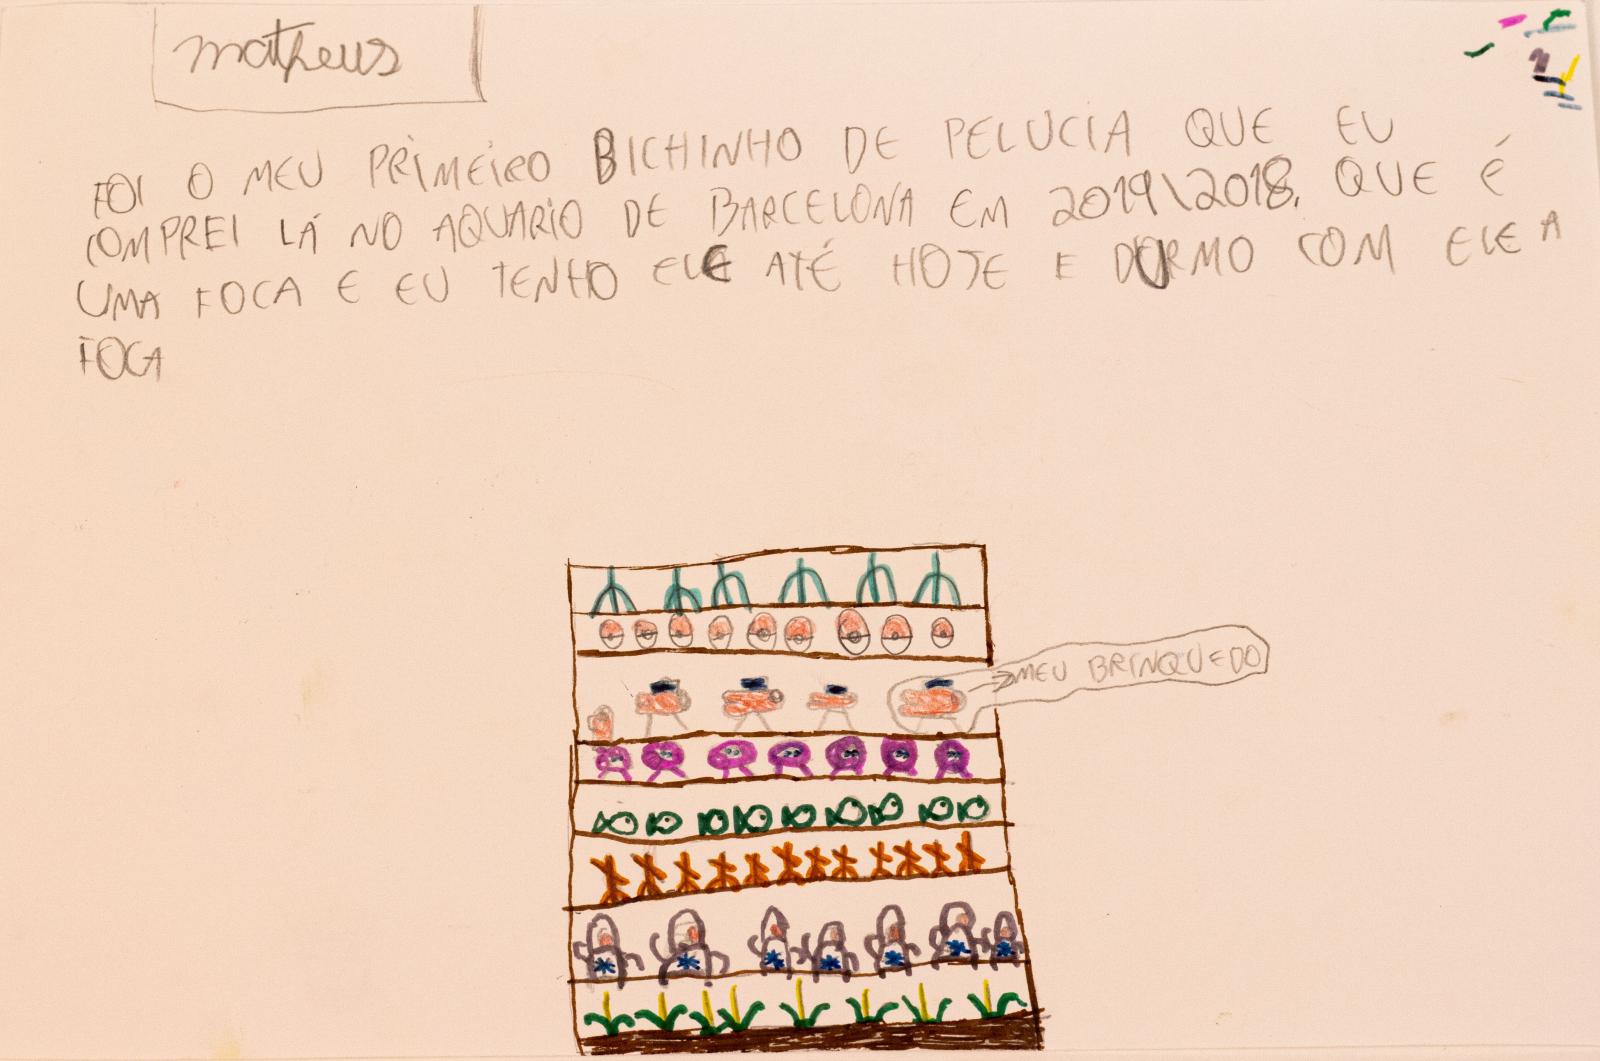 matheus
FOI O MEU PRIMEIRO BICHINHO DE PELUCIA QUE EU
COMPREI LÁ NO AQUARIO DE BARCELONA EM 2019\2018. QUE É
UMA FOCA E EU TENHO ELE ATÉ HOJE E DURMO COM ELE A
FOCA
MEU BRINQUEDO